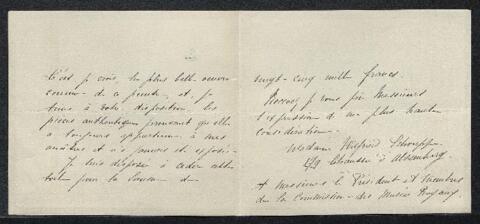 C'est, je crois, la plus belle oeuvre
connue de ce peintre et, je
tiens à votre disposition les
pièces authentiques prouvant qu'elle
a toujours appartenu à mes
ancêtres et n'a jamais été exposée.
Je suis disposée à céder cette
toile pour la somme de
vingt-cinq mille francs.
Recevez, je vous prie, Messieurs
l'expression de ma plus haute
considération.
Madame Wilfrid
Chaussée d'Alsemberg.
A Messieurs le Président et Membres
de la Commission des Musées Royaux.